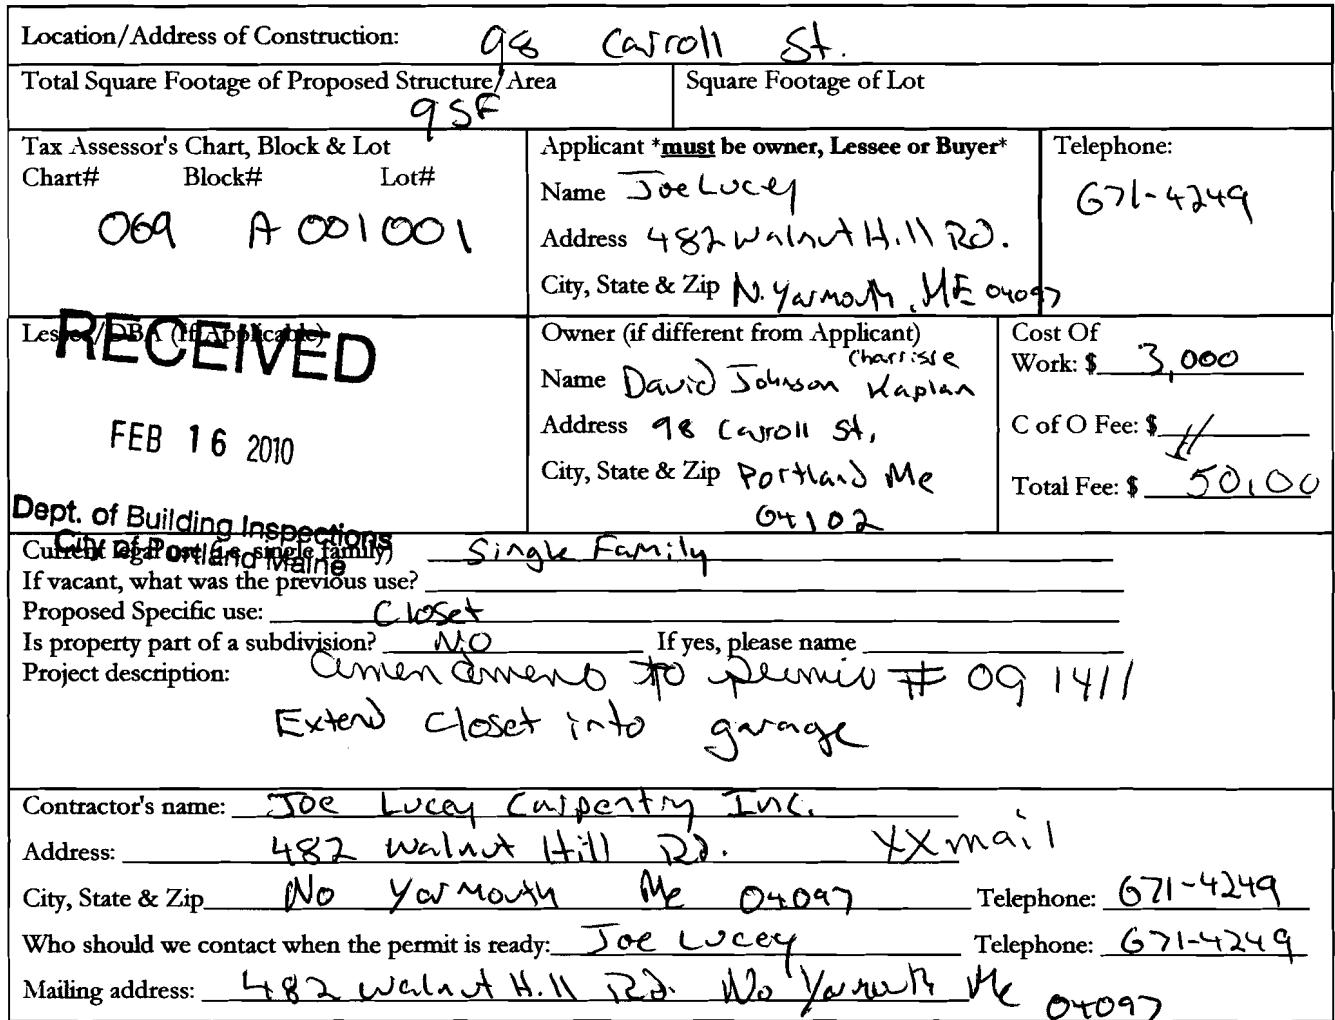 Location/Address of Construction: 98 Carroll St.
Total Square Footage of Proposed Structure/Area
9 SF
Square Footage of Lot
Tax Assessor's Chart, Block & Lot
Chart# Block# Lot#
069 A 001001
Applicant *must be owner, Lessee or Buyer*
Name Joe Lucey
Address 482 Walnut Hill RD.
City, State & Zip N. Yarmouth, ME 04097
Telephone:
671-4249
Lessee/DBA (If Applicable)
RECEIVED
FEB 16 2010
Dept. of Building Inspections
City of Portland Maine
Owner (if different from Applicant)
Name David Johnson Charrisse Kaplan
Address 98 Carroll St,
City, State & Zip Portland Me
04102
Cost Of
Work: $ 3,000
C of O Fee: $
Total Fee: $ 50.00
Current legal use (i.e. single family) Single Family
If vacant, what was the previous use?
Proposed Specific use: Closet
Is property part of a subdivision? NO If yes, please name
Project description: amendment to permit # 09 1411
Extend closet into garage
Contractor's name: Joe Lucey Carpentry Inc.
Address: 482 Walnut Hill Rd. XXmail
City, State & Zip No Yarmouth Me 04097 Telephone: 671-4249
Who should we contact when the permit is ready: Joe Lucey Telephone: 671-4249
Mailing address: 482 Walnut Hill Rd. No Yarmouth Me 04097